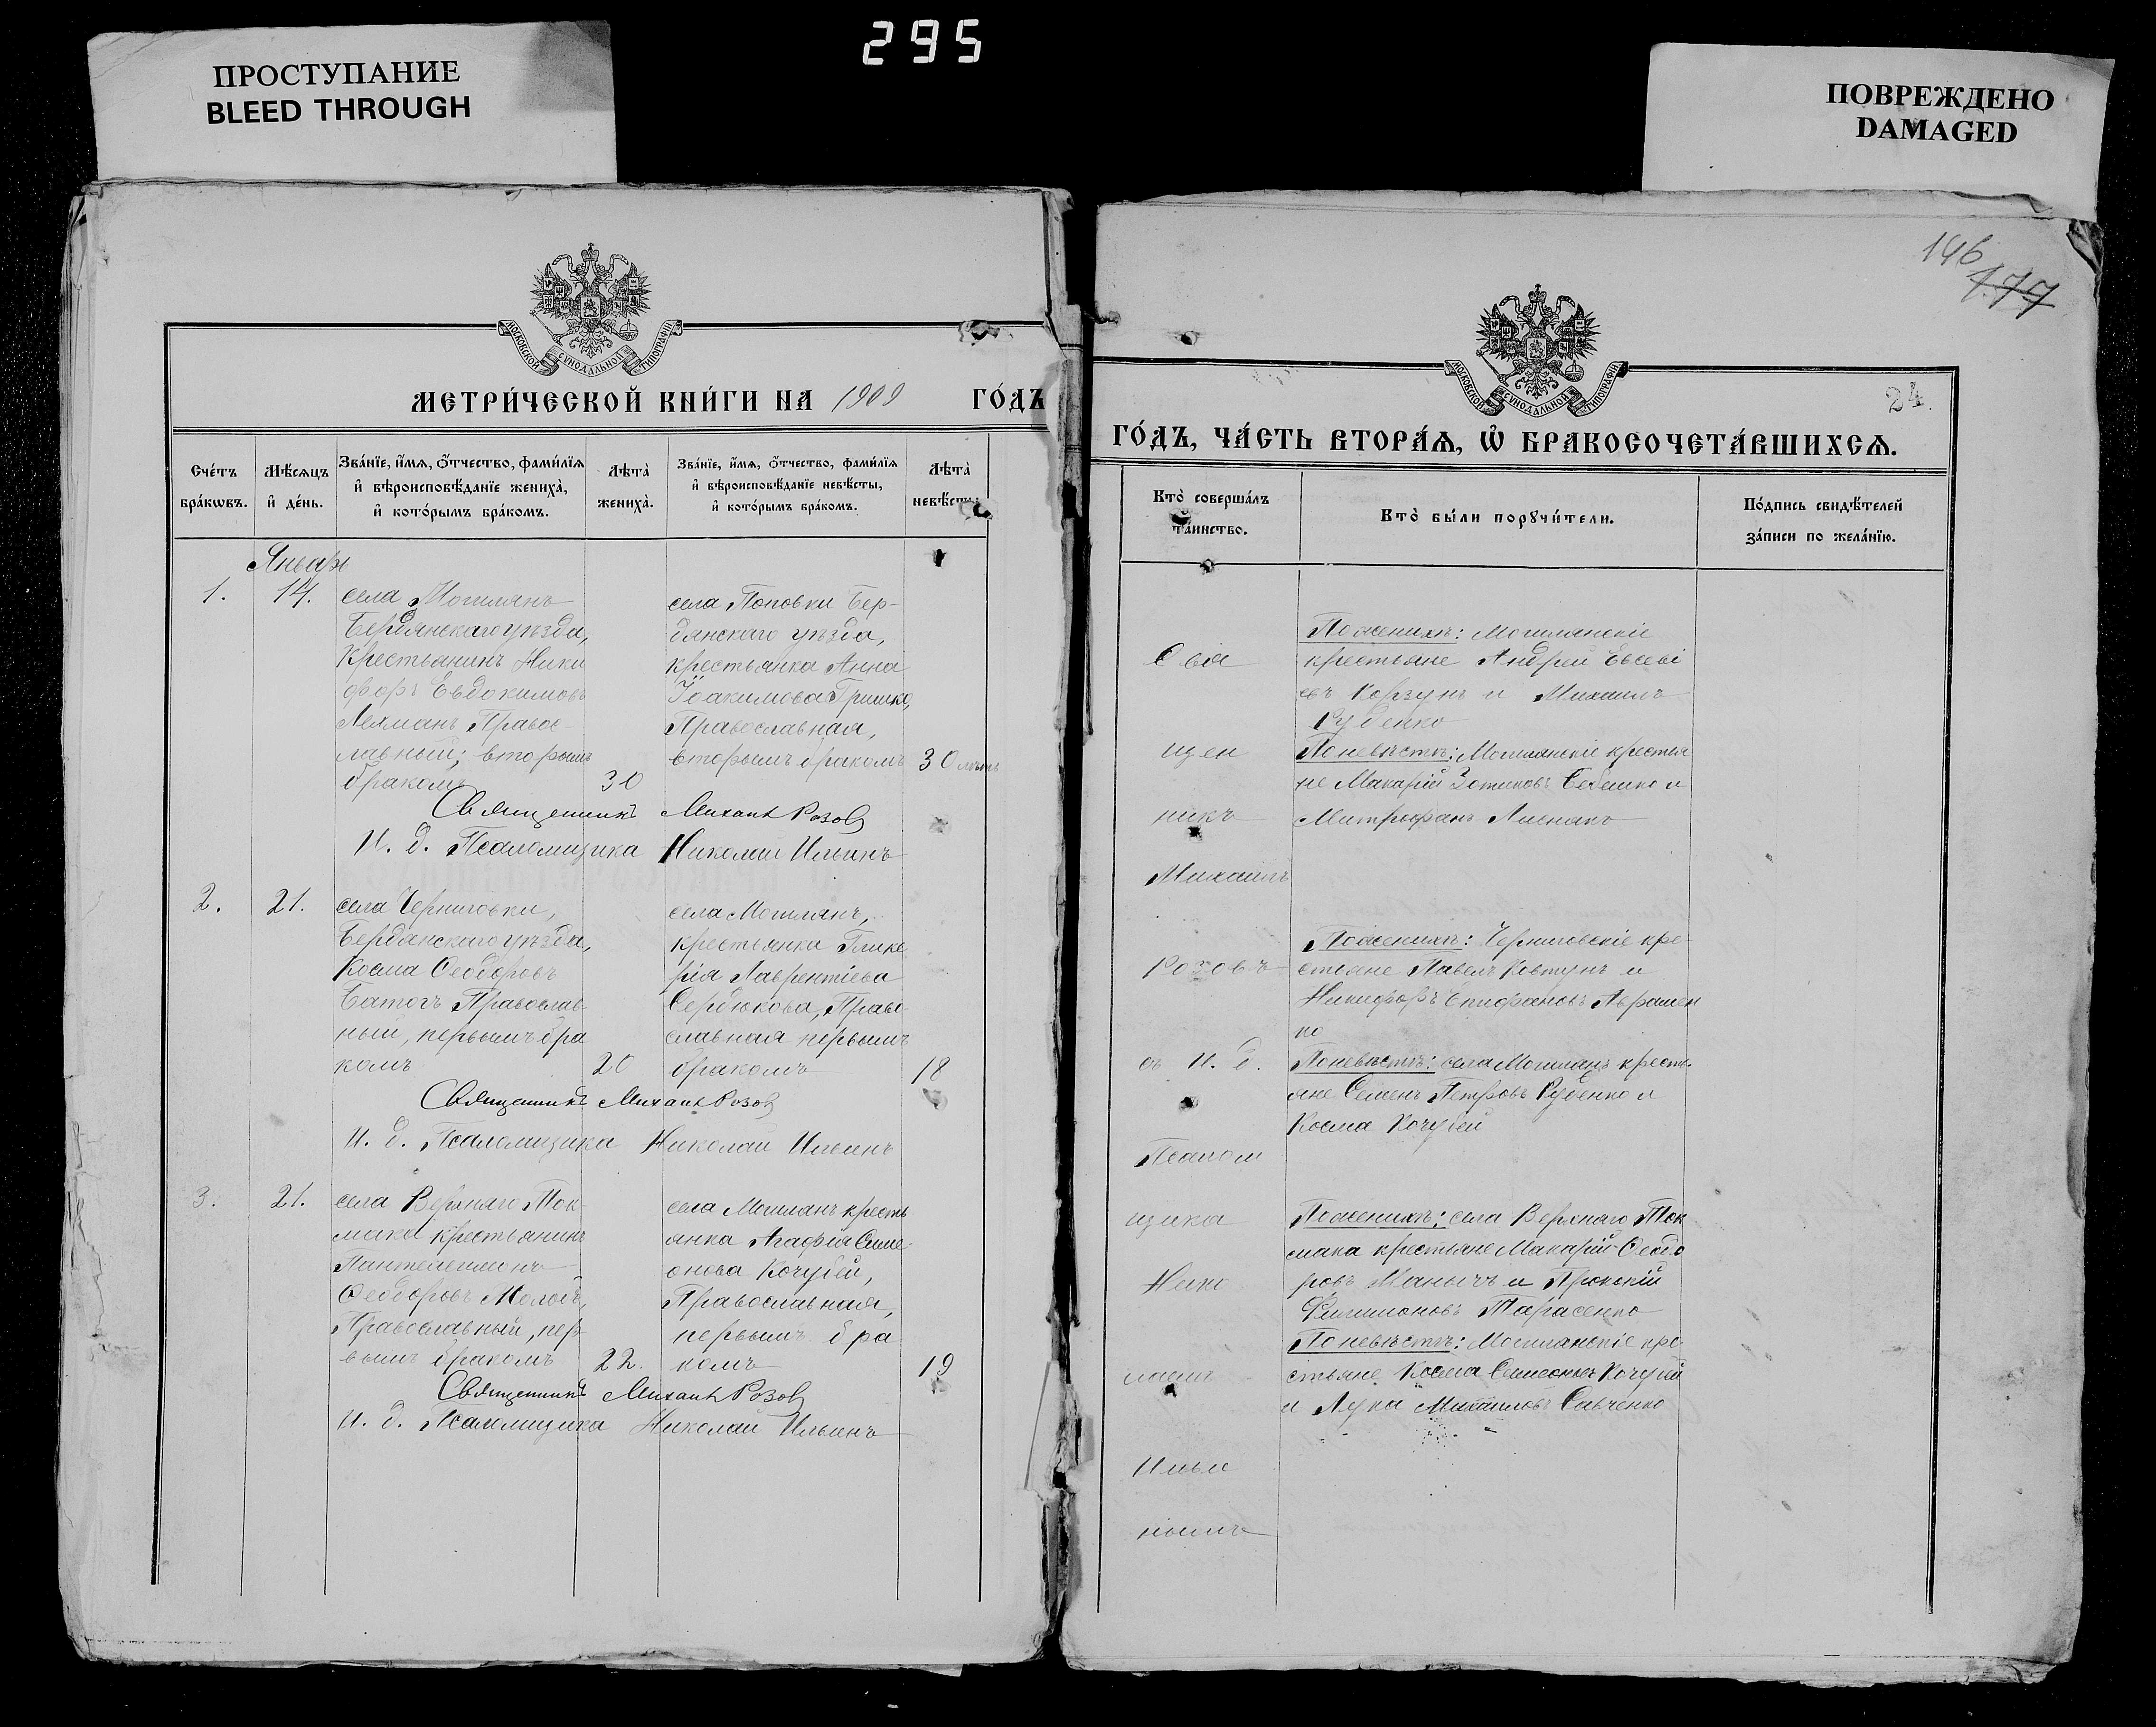 295
ПРОСТУПАНИЕ
BLEED THROUGH
ПОВРЕЖДЕНО
DAMAGED
146
177
24.
МОСКОВСКОЙ СѴНОДАЛЬНОЙ ТИПОГРАФІИ
МЕТРИ́ЧЕСКОЙ КНИ́ГИ НА 1909 ГО́ДЪ
Сче́тъ бра́кѡвъ.
Мѣ́сяцъ и҆ де́нь.
Зва́нїе, и҆́мѧ, ѻ҆́тчество, фами́лїѧ и҆ вѣроисповѣ́данїе жениха̀, и҆ кото́рымъ бра́комъ.
Лѣта̀ жениха̀.
Зва́нїе, и҆́мѧ, ѻ҆́тчество, фами́лїѧ и҆ вѣроисповѣ́данїе невѣ́сты, и҆ кото́рымъ бра́комъ.
Лѣта̀ невѣ́сты.
Январь
1. 14.
села Могилянъ
Бердянскаго уѣзда,
крестьянинъ Ники
форъ Евдокимовъ
Лехманъ Правос-
лавный; вторымъ
бракомъ 30
села Поповки Бер-
дянскаго уѣзда,
крестьянка Анна
Іоакимова Гришко,
Православная,
вторымъ бракомъ 30 лѣтъ
Священникъ Михаилъ Розовъ
И. д. Псаломщика Николай Ильинъ
2. 21.
села Черниговки,
Бердянскаго уѣзда,
Косма Ѳеодоровъ
Батогъ Православ-
ный, первымъ бра
комъ 20
села Могилянъ,
крестьянка Глике
рія Лаврентіева
Сердюкова, Право
славная первымъ
бракомъ 18
Священникъ Михаилъ Розовъ
И. д. Псаломщика Николай Ильинъ
3. 21.
села Верхняго Ток-
мака крестьянинъ
Пантелеимонъ
Ѳеодоровъ
Православный, пер-
вымъ бракомъ 22.
села Могилянъ кресть
янка Агафія Симе-
онова Кочубей,
Православная,
первымъ бра
комъ 19
Священникъ Михаилъ Розовъ
И. д. Псаломщика Николай Ильинъ
МОСКОВСКОЙ СѴНОДАЛЬНОЙ ТИПОГРАФІИ
ГО́ДЪ, ЧА́СТЬ ВТОРА́Ѧ, Ѽ БРАКОСОЧЕТА́ВШИХСѦ.
Кто̀ соверша́лъ та́инство.
Кто̀ бы́ли порꙋчи́тели.
По́дпись свидѣ́телей за́писи по жела́нїю.
Свя
щен
никъ
Михаилъ
Розовъ
съ И. д.
Псалом
щика
Нико
лаемъ
Ильи
нымъ
По женихѣ: Могилянскіе
крестьяне Андрей Евсеві
евъ Корзунъ и Михаилъ
Руденко
По невѣстѣ: Могилянскіе крестья
не Макарій Зотиковъ и
Митрофанъ Лиснякъ
По женихѣ: Черниговскіе кре-
стьяне Павелъ Ковтунъ и
Никифоръ Епифановъ Авраmен
ко
По невѣстѣ: села Могилянъ кресть-
яне Семенъ Петровъ Руденко и
Косма Кочубей
По женихѣ: села Верхняго Ток
мака крестьяне Макарій Ѳеодо
ровъ Манычъ и Прокопій
Филимоновъ Тарасенко
По невѣстѣ: Могилянскіе кре-
стьяне Косма Симеоновъ Кочубей
и Лука Михаиловъ Савченко